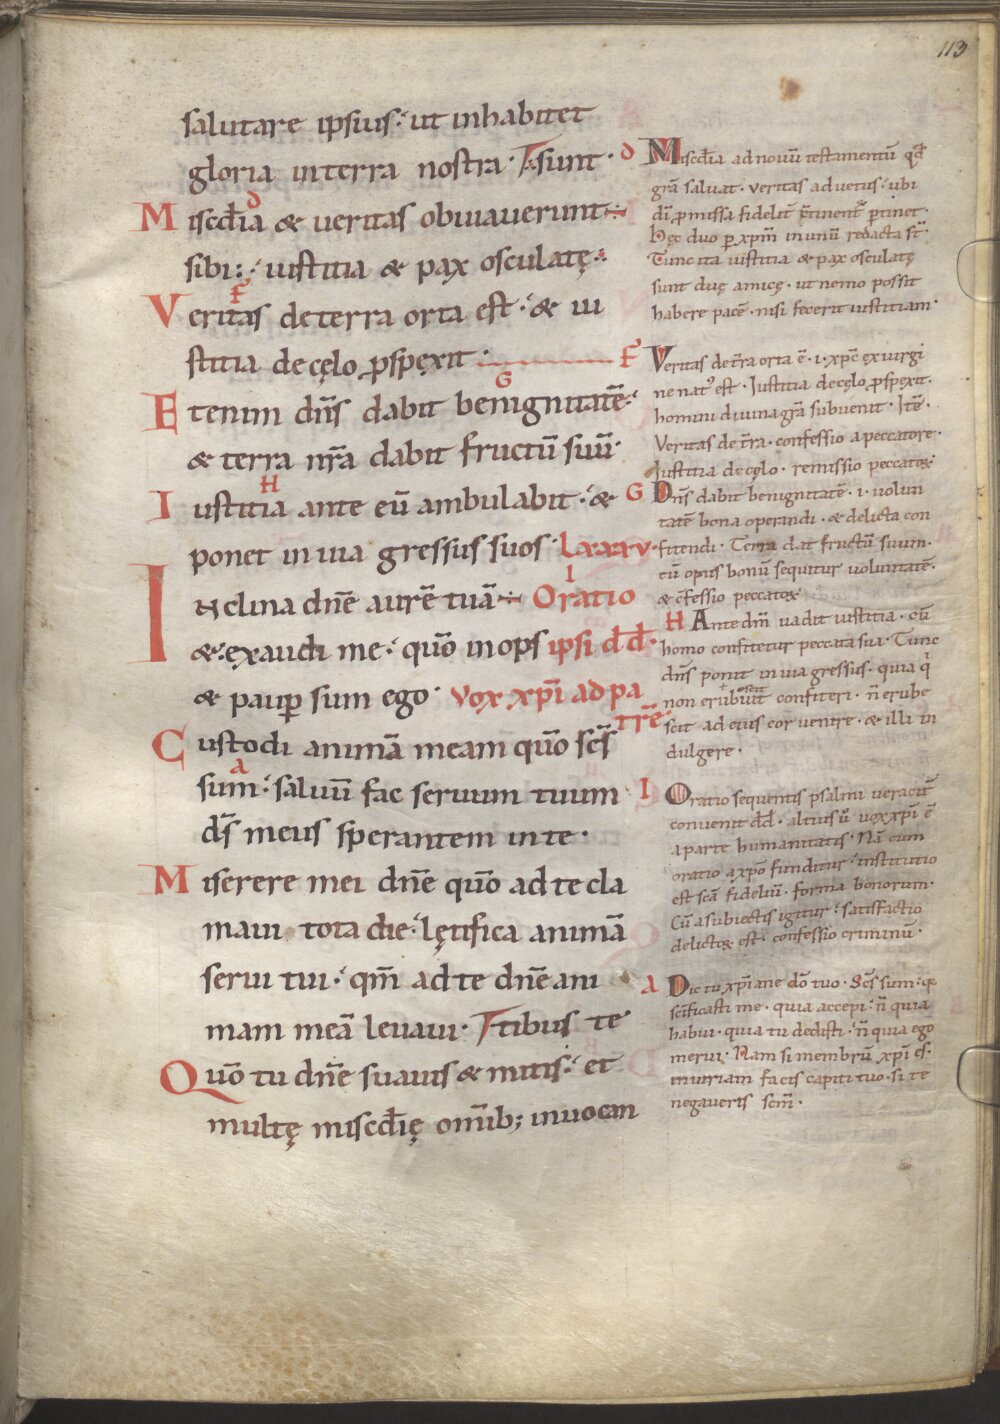 113
salutare ipsius· ut inhabitet
gloria interra nostra· sunt·
D
Misc̄dia & ueritas obuiauerunt
sibi: iustitia & pax osculatę·
F
Veritas deterra orta est· & iu
stitia decęlo ꝓspęxit·
G
Etenim dn̄s dabit benignitatē·
& terra nr̄a dabit fructū suū·
H
Iustitia ante eū ambulabit· &
ponet in uia gressus suos· Lxxxv·
I
Inclina dn̄e aurē tuā Oratio
& exaudi me· quō inops ipsi d̄d·
& pauꝑ sum ego· vox xp̄i ad pa
trē·
Custodi animā meam quō sc̄s
A
sum· saluū fac seruum tuum
d̄s meus sperantem in te·
Miserere mei dn̄e quō ad te cla
maui tota die· lętifica animā
serui tui· qm̄ ad te dn̄e ani
mam meā leuaui· tibus te
Quō tu dn̄e suauis & mitis· et
multę misc̄dię om̄ib; inuocan
D Misc̄dia ad nouū testamentū qđ
grā saluat· ueritas ad uetus· ubi
dī ꝓmissa fidelit ꝑtinet·
Hęc duo ꝑ xp̄m in unū redacta st̄·
Tunc ita iustitia & pax osculatę
sunt duę amicę· ut nemo possit
habere pacē· nisi fecerit iustitiam·
F Veritas de tr̄a orta ē· i· xp̄c ex uirgi
ne nat᾽ est· Iustitia decęlo ꝓspęxit·
homini diuina grā subuenit· Itē·
Veritas de tr̄a· confessio a peccatore·
Iustitia decęlo· remissio peccatoꝝ
G Dn̄s dabit benignitatē· i· uolun
tatē bona operandi· & delicta con
fitendi· Terra dat fructū suum·
cū opus bonū sequitur uoluntatē·
& c̄fessio peccatoꝝ
H Ante dm̄ uadit iustitia· cū
homo confitetur peccata sua· Tunc
dn̄s ponit in uia gressus· quia q̄
non erubuit confiteri· n̄ erube
scit ad eius cor uenire· & illi in
dulgere·
I Oratio sequentis psalmi ueracit̄
conuenit d̄d· altius ū uox xp̄i ē
a parte humanitatis· Nā cum
oratio a xp̄o funditur· institutio
est sc̄a fideliū· forma bonorum·
Cū a subiectis igitur· satisfactio
delictoꝝ est· confessio criminū·
A Dic tu xp̄iane dō tuo· Sc̄s sum· q
sc̄ificasti me· quia accepi· n̄ quia
habui· quia tu dedisti· n̄ quia ego
merui· Nam si membrū xp̄i es·
iniuriam facis capiti tuo· si te
negaueris sc̄m·